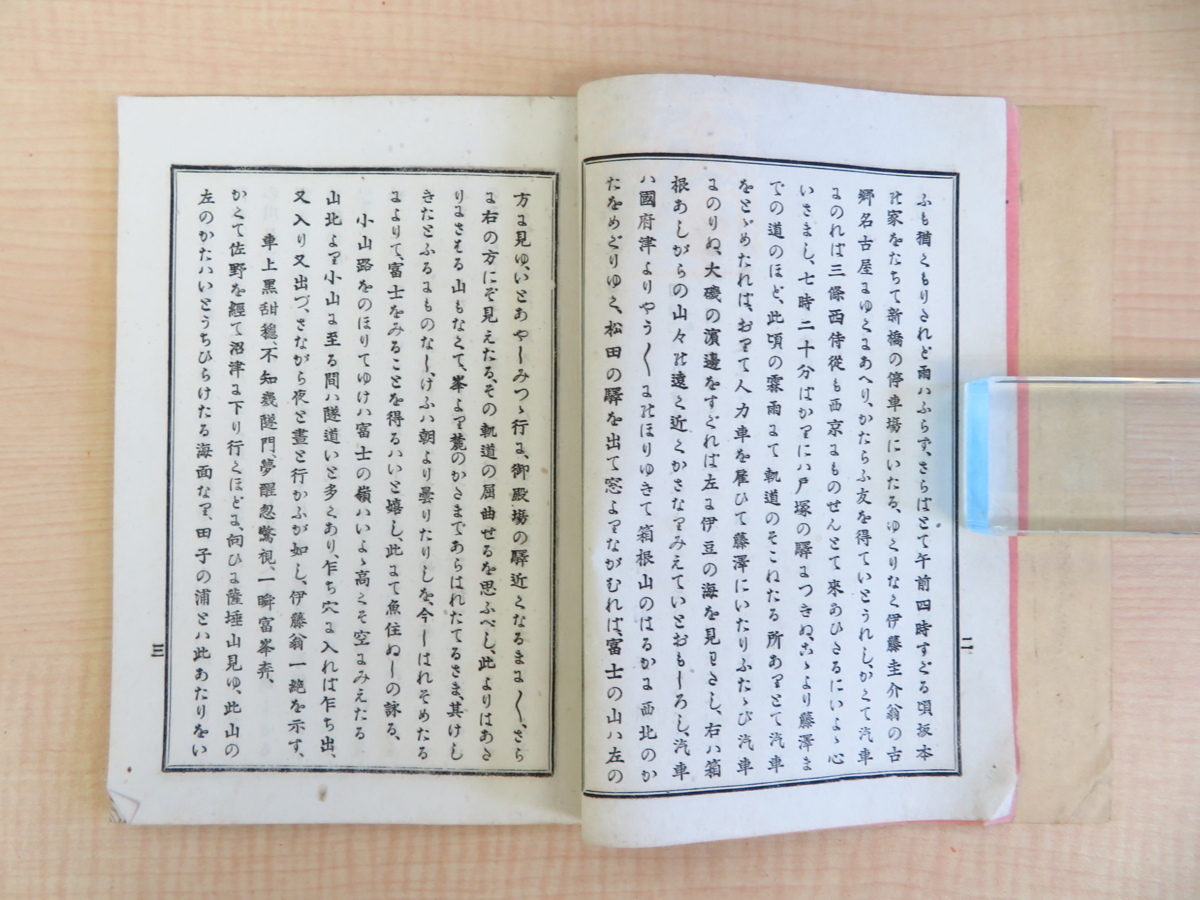 ふも猶くもりされど雨ハふらず、さらばとて午前四時すぐる頃坂本
の家をたちて新橋の停車場にいたる、ゆくりなく伊藤圭介翁の古
郷名古屋にゆくにあへり、かたらふ友を得ていとうれし、かくて汽車
にのれば三條西侍從も西京にものせんとて來あひさるにいよゝ心
いさまし、七時二十分ばかりにハ戸塚の驛につきぬ、こゝより藤澤ま
での道のほど、此頃の霖雨にて軌道のそこねたる所ありとて汽車
をとゞめたれば、おりて人力車を雇ひて藤澤にいたりふたゝび汽車
にのりぬ、大磯の濱邊をすぐれば左に伊豆の海を見わさし、右ハ箱
根あしがらの山々の遠く近くかさなりみえていとおもしろし、汽車
ハ國府津よりやう〱にのほりゆきて箱根山のはるかに西北のか
たをめぐりゆく、松田の驛を出て窓よりながむれば、富士の山ハ左の
二
方に見ゆ、いとあやしみつゝ行に、御殿塲の驛近くなるまに〱、さら
に右の方にぞ見えたる、その軌道の屈曲せるを思ふべし、此よりはあさ
りにさはる山もなくて、峯より麓のかさまであらはれたてるさま、其けし
きたとふるにものなし、けふハ朝より曇りたりしを、今しはれそめたる
によりて、富士をみることを得るハいと嬉し、此にて魚住ぬしの詠る、
小山路をのほりてゆけハ富士の嶺ハいよゝ高くそ空にみえたる
山北より小山に至る間ハ隧道いと多くあり、乍ち穴に入れば乍ち出、
又入り又出づ、さながら夜と晝と行かふが如し、伊藤翁一絶を示す、
車上黑甜穩不知幾隧門、夢醒忽驚視、一瞬富峯奔、
かくて佐野を經て沼津に下り行くほどに、向ひに薩埵山見ゆ、此山の
左のかたハいとうちひらけたる海面なり、田子の浦とハ此あたりをい
三